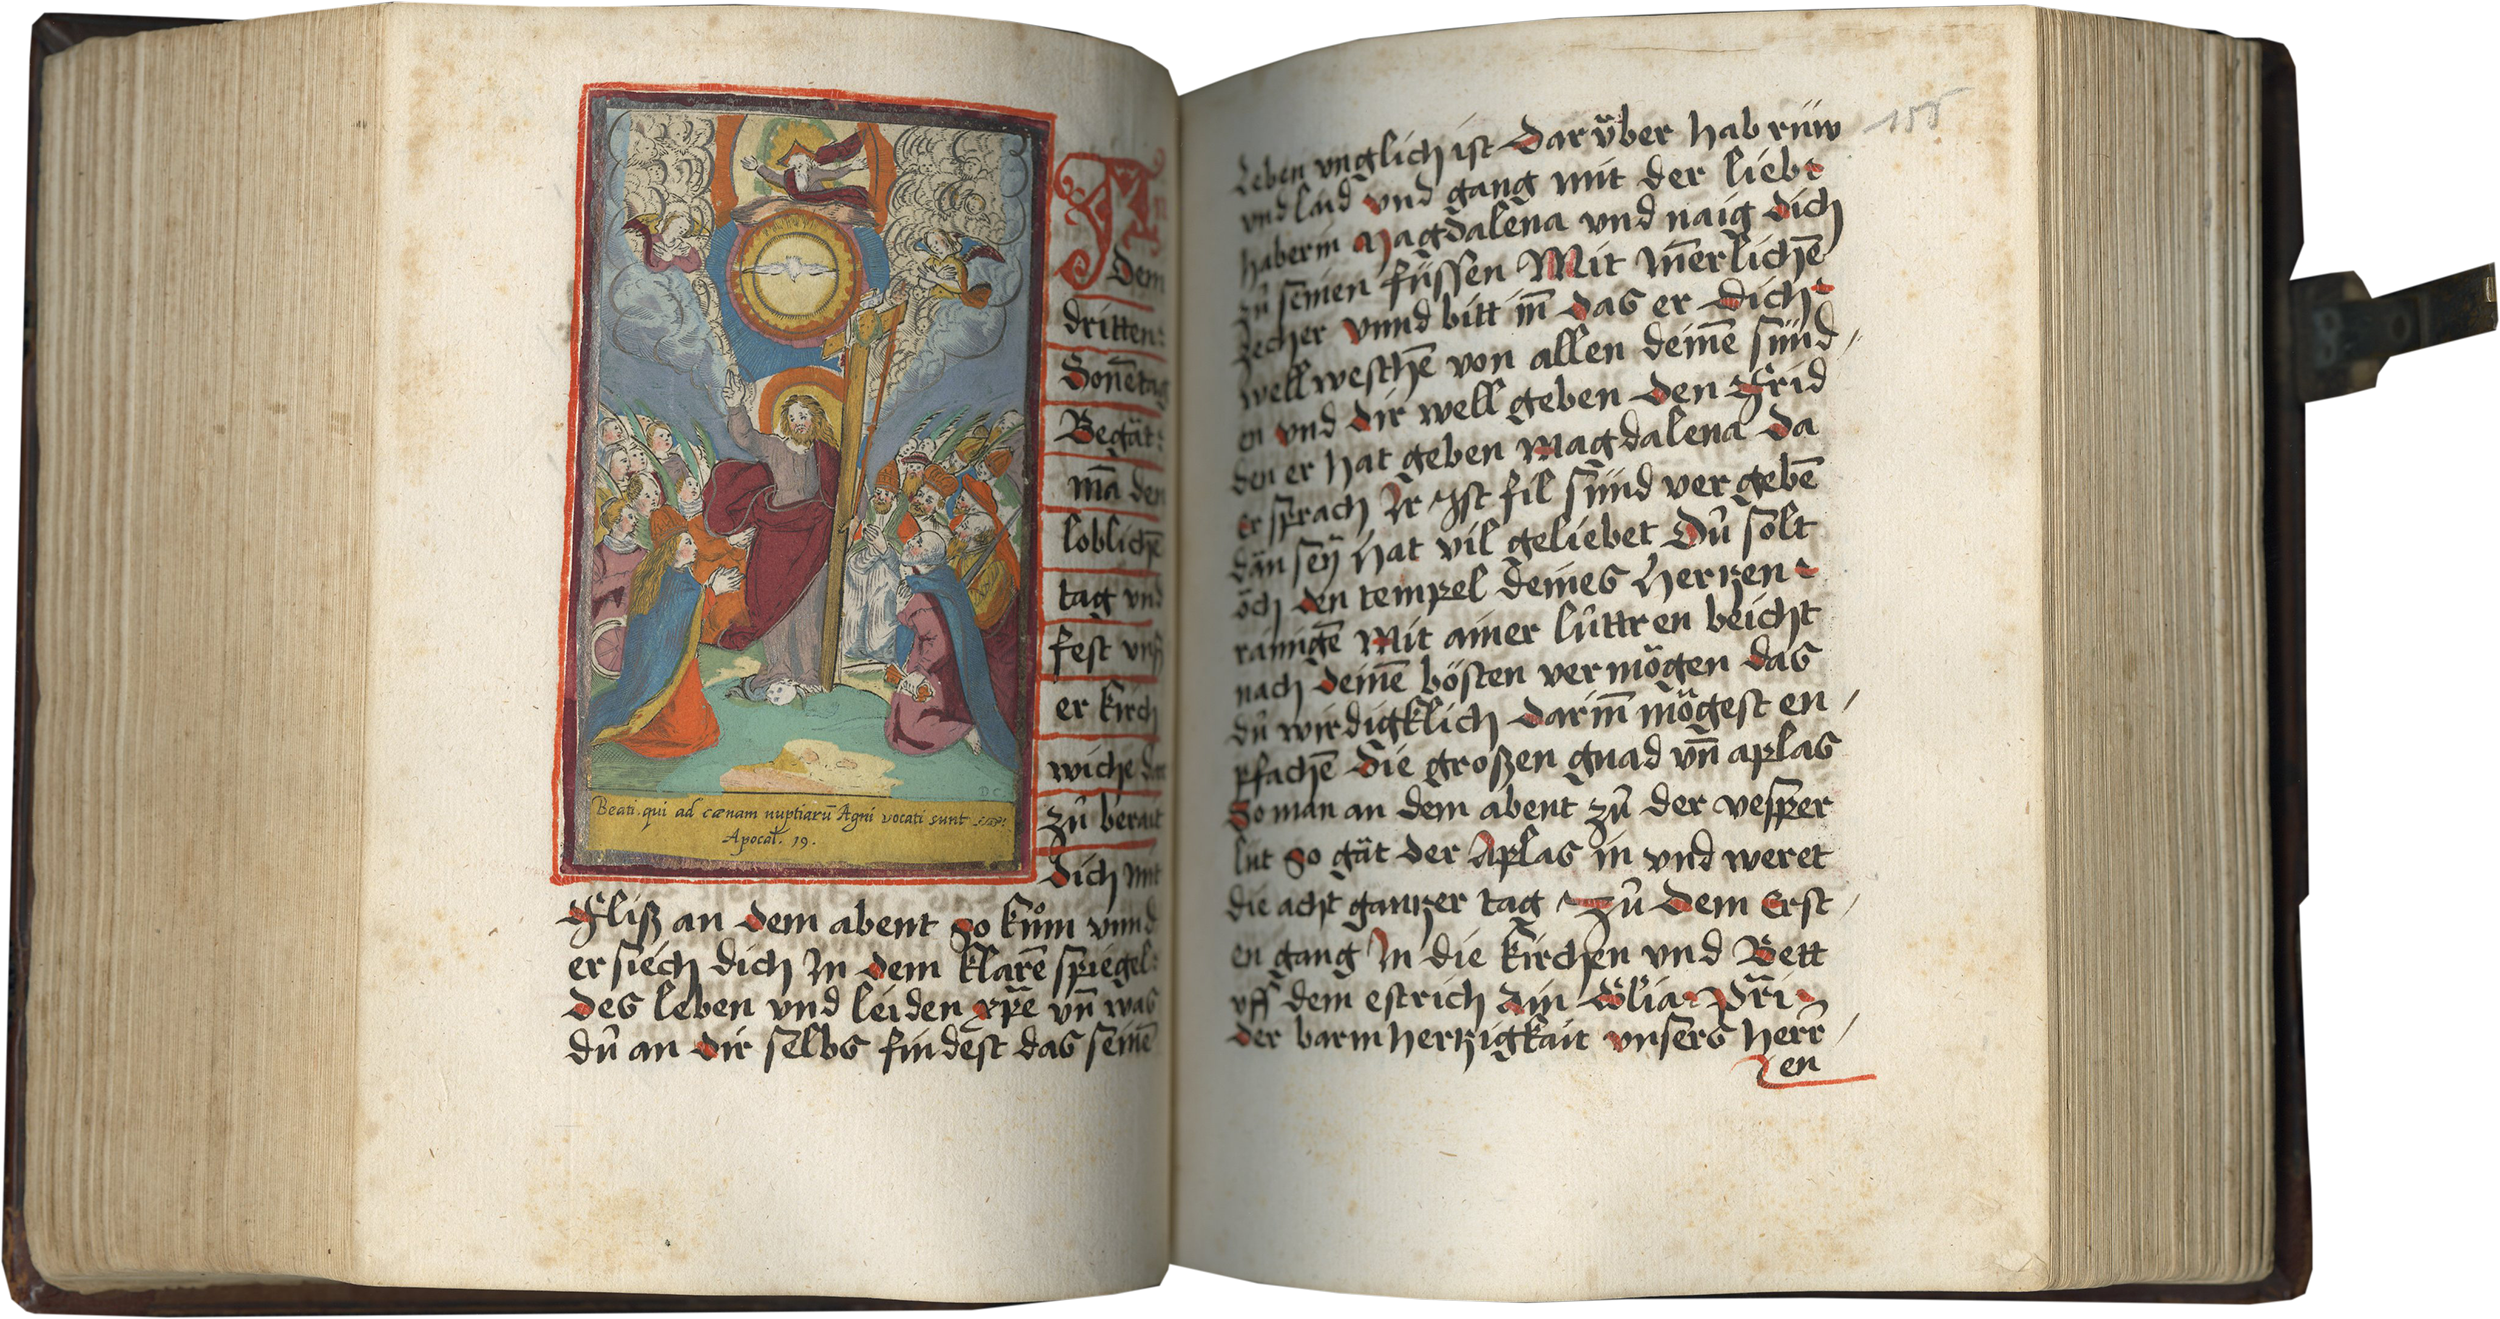 Beati qui ad cœnam nuptiarū Agni vocati sunt
Apocal. 19.
D C
In
dem
dritten
Soñetag
Begät
mā den
loblichē
tag vnd
fest vnß
er kirch
wiche dar
zů berait
dich mit
fliß an dem abent so kům vnnd
er siech dich In dem klarē spiegel
des leben vnd leiden xp̄e vn̄ was
dů an dir selbs findest das seinē
155
Leben vnglich ist dar über hab rüw
vnd laid vnd gang mit der lieb
haberin Magdalena vnd naig dich
zů seinen füssen Mit in̄erlichē
zecher vnnd bitt in̄ das er dich
well weschē von allen deinē sünd
en vnd dir well geben den frid
den er hat geben Magdalena da
er sprach Ir Ist fil sünd ver gebē
dān seÿ hat vil geliebet Dů solt
öch den tempel deines hertzen
rainigē Mit ainer lůttren beicht
nach deinē bösten vermögen das
dů wirdigklich darin̄ mögest en
pfachē die großen gnad vn̄ aplas
So man an dem abent zů der vesper
lüt so gät der Aplas in vnd weret
die acht gantzer tag Zů dem Erst
en gang In die kirchen vnd Bett
vff dem estrich Ain
der barmhertzigkait vnsers herr
en